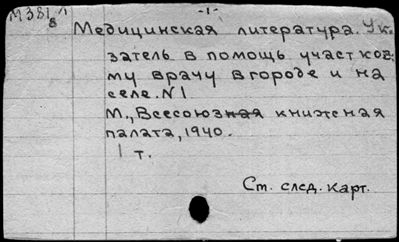 -1-
М381
в
Медицинская литература. Ука
затель в помощь участков.
му врачу в городе и на
селе. N1
М., Всесоюзная книжная
палата, 1940.
1 т.
См. след. карт.